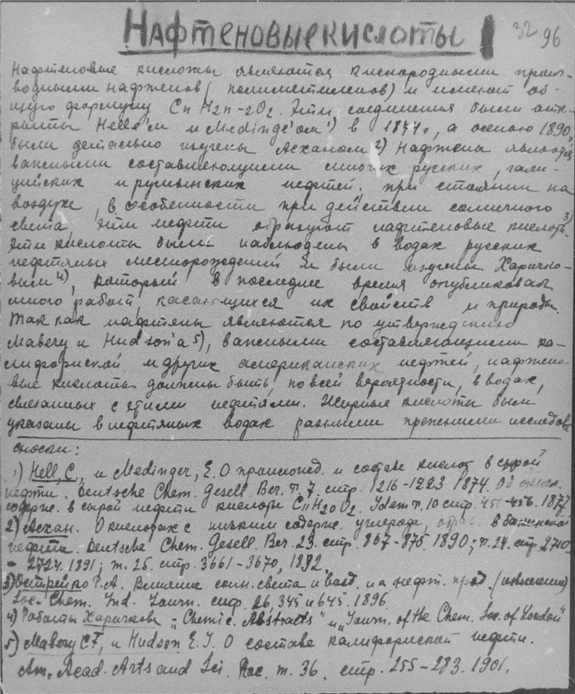 Нафтеновые кислоты
32 96
Нафтеновые кислоты являются кислородными произ-
водными нафтенов (полиметиленов) и имеют об-
щую формулу CnH2n-2O2. Эти соединения были отк-
рыты Hell'ем и Medinge'ом 1) в 1874г, а осенью 1890,
были детально изучены Асханом 2) Нафтены являются
важными составляющими многих русских, гали-
цийских и румынских нефтей. При стоянии на
воздухе, в особенности при действии солнечного
света эти нефти образуют нафтеновые кислоты 3)
Эти кислоты были наблюдены в водах русских
нефтяных месторождений и были изучены Харичко-
вым 4), который в последнее время опубликовал
много работ, касающихся их свойств и природы.
Так как нафтены являются по утверждению
Mabery и Hudson'a 5), важными составляющими ка-
лифорнской и других американских нефтей, нафтено-
вые кислоты должны быть, по всей вероятности, в водах,
связанных с этими нефтями. Жирные кислоты были
указаны в нефтяных водах разными прежними исследова
сноски:
1) Hell C, и Medinger, E. О происхожд. и составе кислот в сырой
нефти. Deutsche Chem. Gesell. Ber. Т. 7. стр. 1216-1223 1874. Об
содерж. в сырой нефти кислоты C11H20O2. Idem т. 10 стр. 451-456. 1877
2) Асхан. О кислотах с низким содерж. углерода, в Бакинской
нефти. Deutsche Chem. Gesell. Ber. 23. стр. 867-875 1890; т. 24. стр 2710-
- 2724. 1891; т. 25. стр. 3661-3670, 1892
3) Р.А. Влияние солн. света и возд. на нефт. прод. (извлечение)
Soc. Chem. Ind. Journ. стр. 26, 345 и 645. 1896.
4) Работы Харичкова „Chemic. Abstracts" и „Journ. of the Chem. Soc. of London"
5) Mabery C.F, и Hudson E.J. О составе калифорнской нефти.
Am. Acad. Arts and Sci. Roc. т. 36. стр. 255-283. 1901.